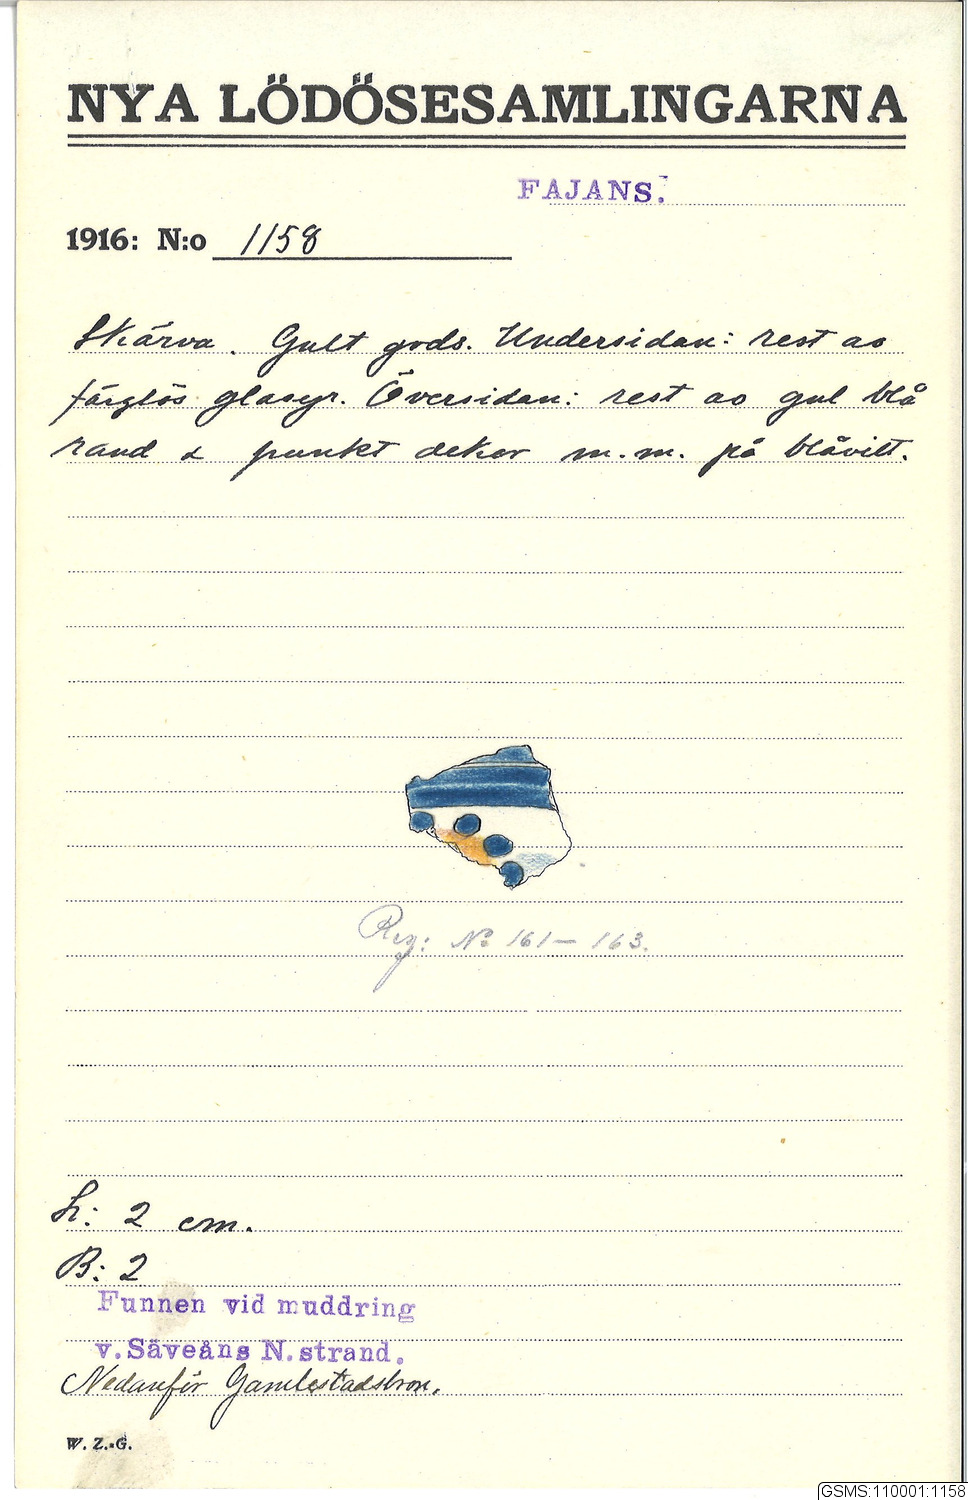 NYA LÖDÖSESAMLINGARNA
FAJANS.
1916: N:o 1158
Skärva. Gult gods. Undersidan: rest av
färglös glasyr. Översidan: rest av gul blå
rand & punkt dekor m.m. på blåvitt.
Reg: No 161–163.
L: 2 cm.
B: 2
Funnen vid muddring
v. Säveåns N. strand.
Nedanför Gamlestadsbron.
W. Z.-G.
GSMS:110001:1158